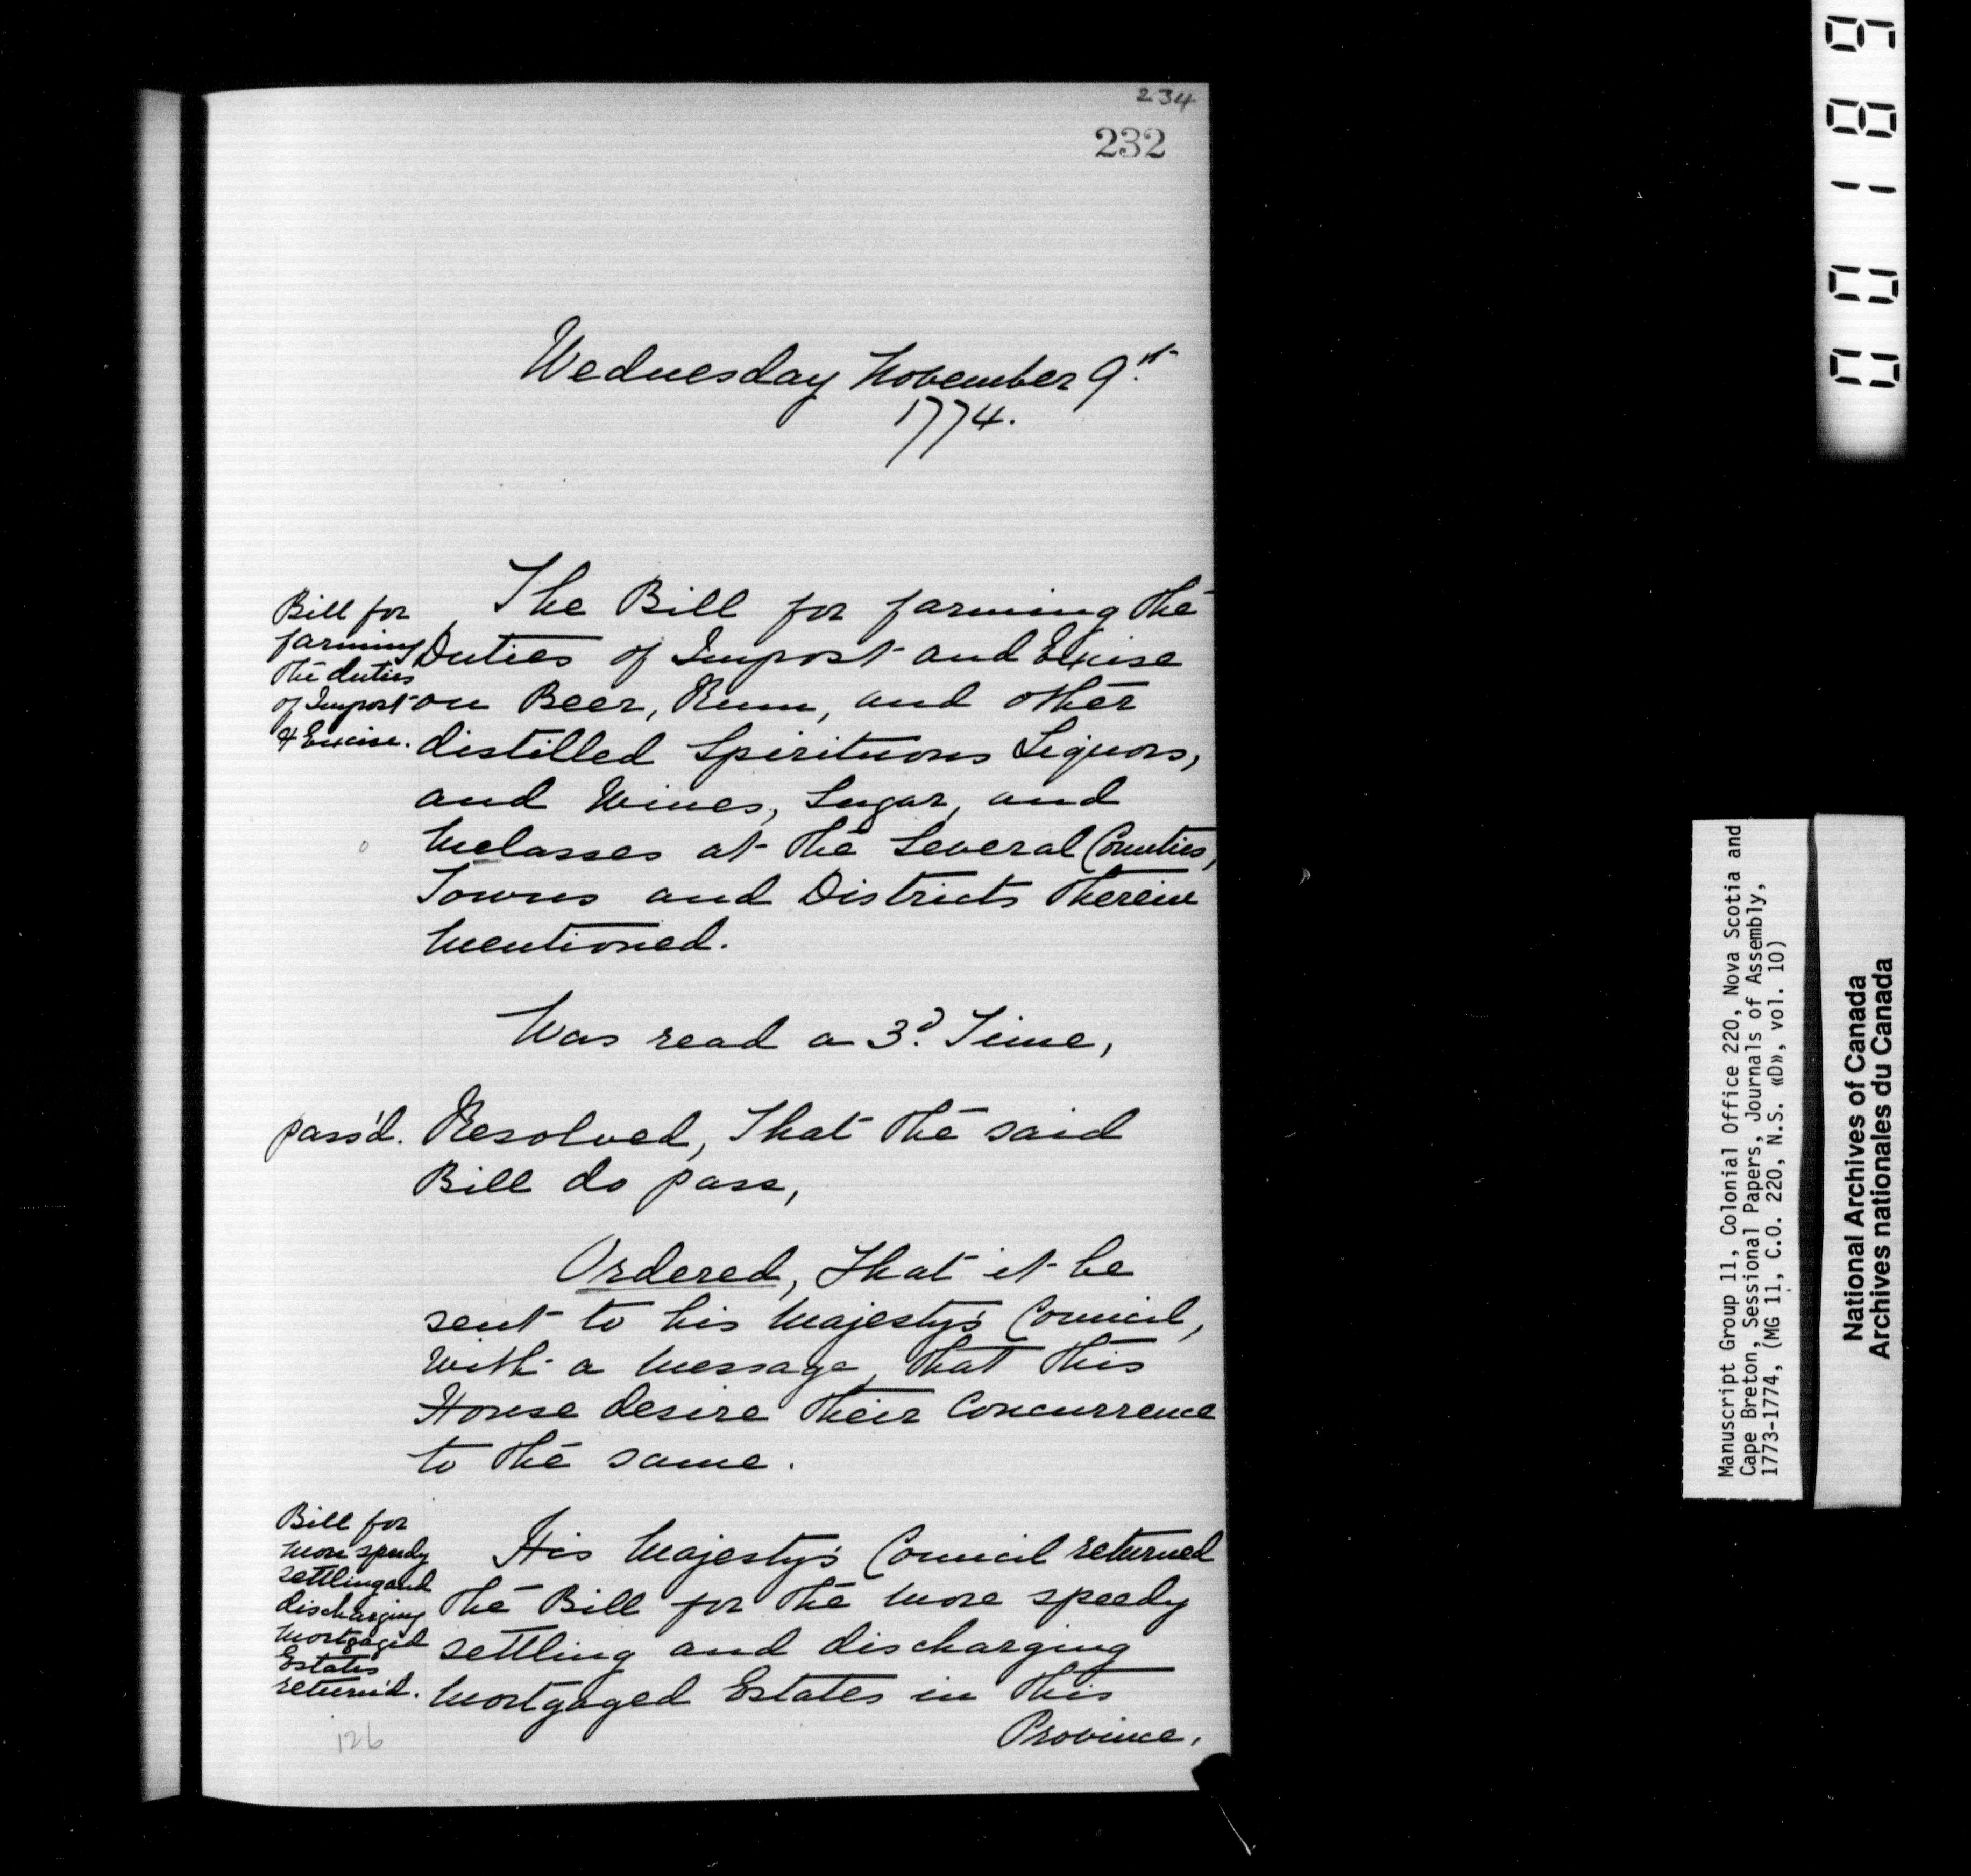 234
232
Wednesday November 9.th
1774.
Bill for
farming
the duties
of Impost
& Excise.
The Bill for farming the
Duties of Impost and Excise
on Beer, Rum, and other
distilled Spirituous Liquors,
and Wines, Sugar, and
Melasses at the Several Counties,
Towns and Districts therein
Mentioned.
Was read a 3.d Time,
pass'd.
Resolved, That the said
Bill do pass,
Ordered, That it be
sent to his Majesty's Council,
With a Message, that this
House desire their Concurrence
to the same.
Bill for
more speedy
settling and
discharging
Mortgaged
Estates
return'd.
His Majesty's Council returned
the Bill for the more speedy
settling and discharging
Mortgaged Estates in this
Province,
126
00189
Manuscript Group 11, Colonial Office 220, Nova Scotia and
Cape Breton, Sessional Papers, Journals of Assembly,
1773-1774, (MG 11, C.O. 220, N.S. «D», vol. 10)
National Archives of Canada
Archives nationales du Canada